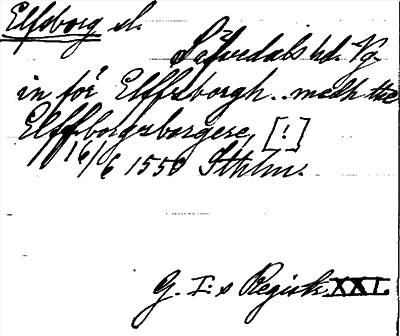 Elfsborg sl.
Sävedals hd. Vg.
in för Elffzborgh .. medh the
Elffborgzborgere, [!]
16/6 1550 Sthlm.
G. I:s Registr. XXI.